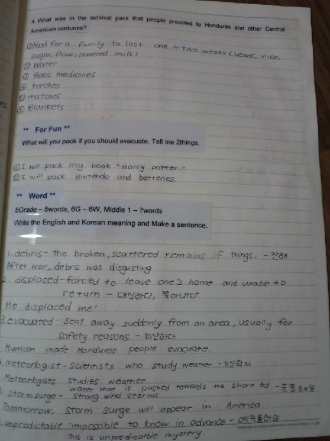 4. What was in the survival pack that people provided to Honduras and other Central
American contures?
① Food for a family to last one ~ two weeks (beans, rice,
sugar, flour, powered milk)
② Water
③ Basic medicines
④ torches
⑤ matches
⑥ Blankets
** For Fun **
What will you pack if you should evacuate. Tell me 2things.
① I will pack my book "Harry potter."
② I will pack Nintendo and batteries.
** Word **
5Grade – 5words, 6G – 6W, Middle 1 – 7words
Write the English and Korean meaning and Make a sentence.
1. debris - The broken, scattered remains of things. -
After war, debris was disgusting
2. displaced - forced to leave one's home and unable to
return -
He displaced me!
3. evacuated - sent away suddenly from an area, usually for
safety reasons -
Hurrican made Honduras people evacuate.
4. meteorologist - scientists who study weather -
Meteorologists studies weather.
water that is pushed towards the shore by -
5. storm surge - strong wind storms
Tommorrow, storm surge will appear in America.
unpredictable impossible to know in advance -
This is unpredicatble mystery